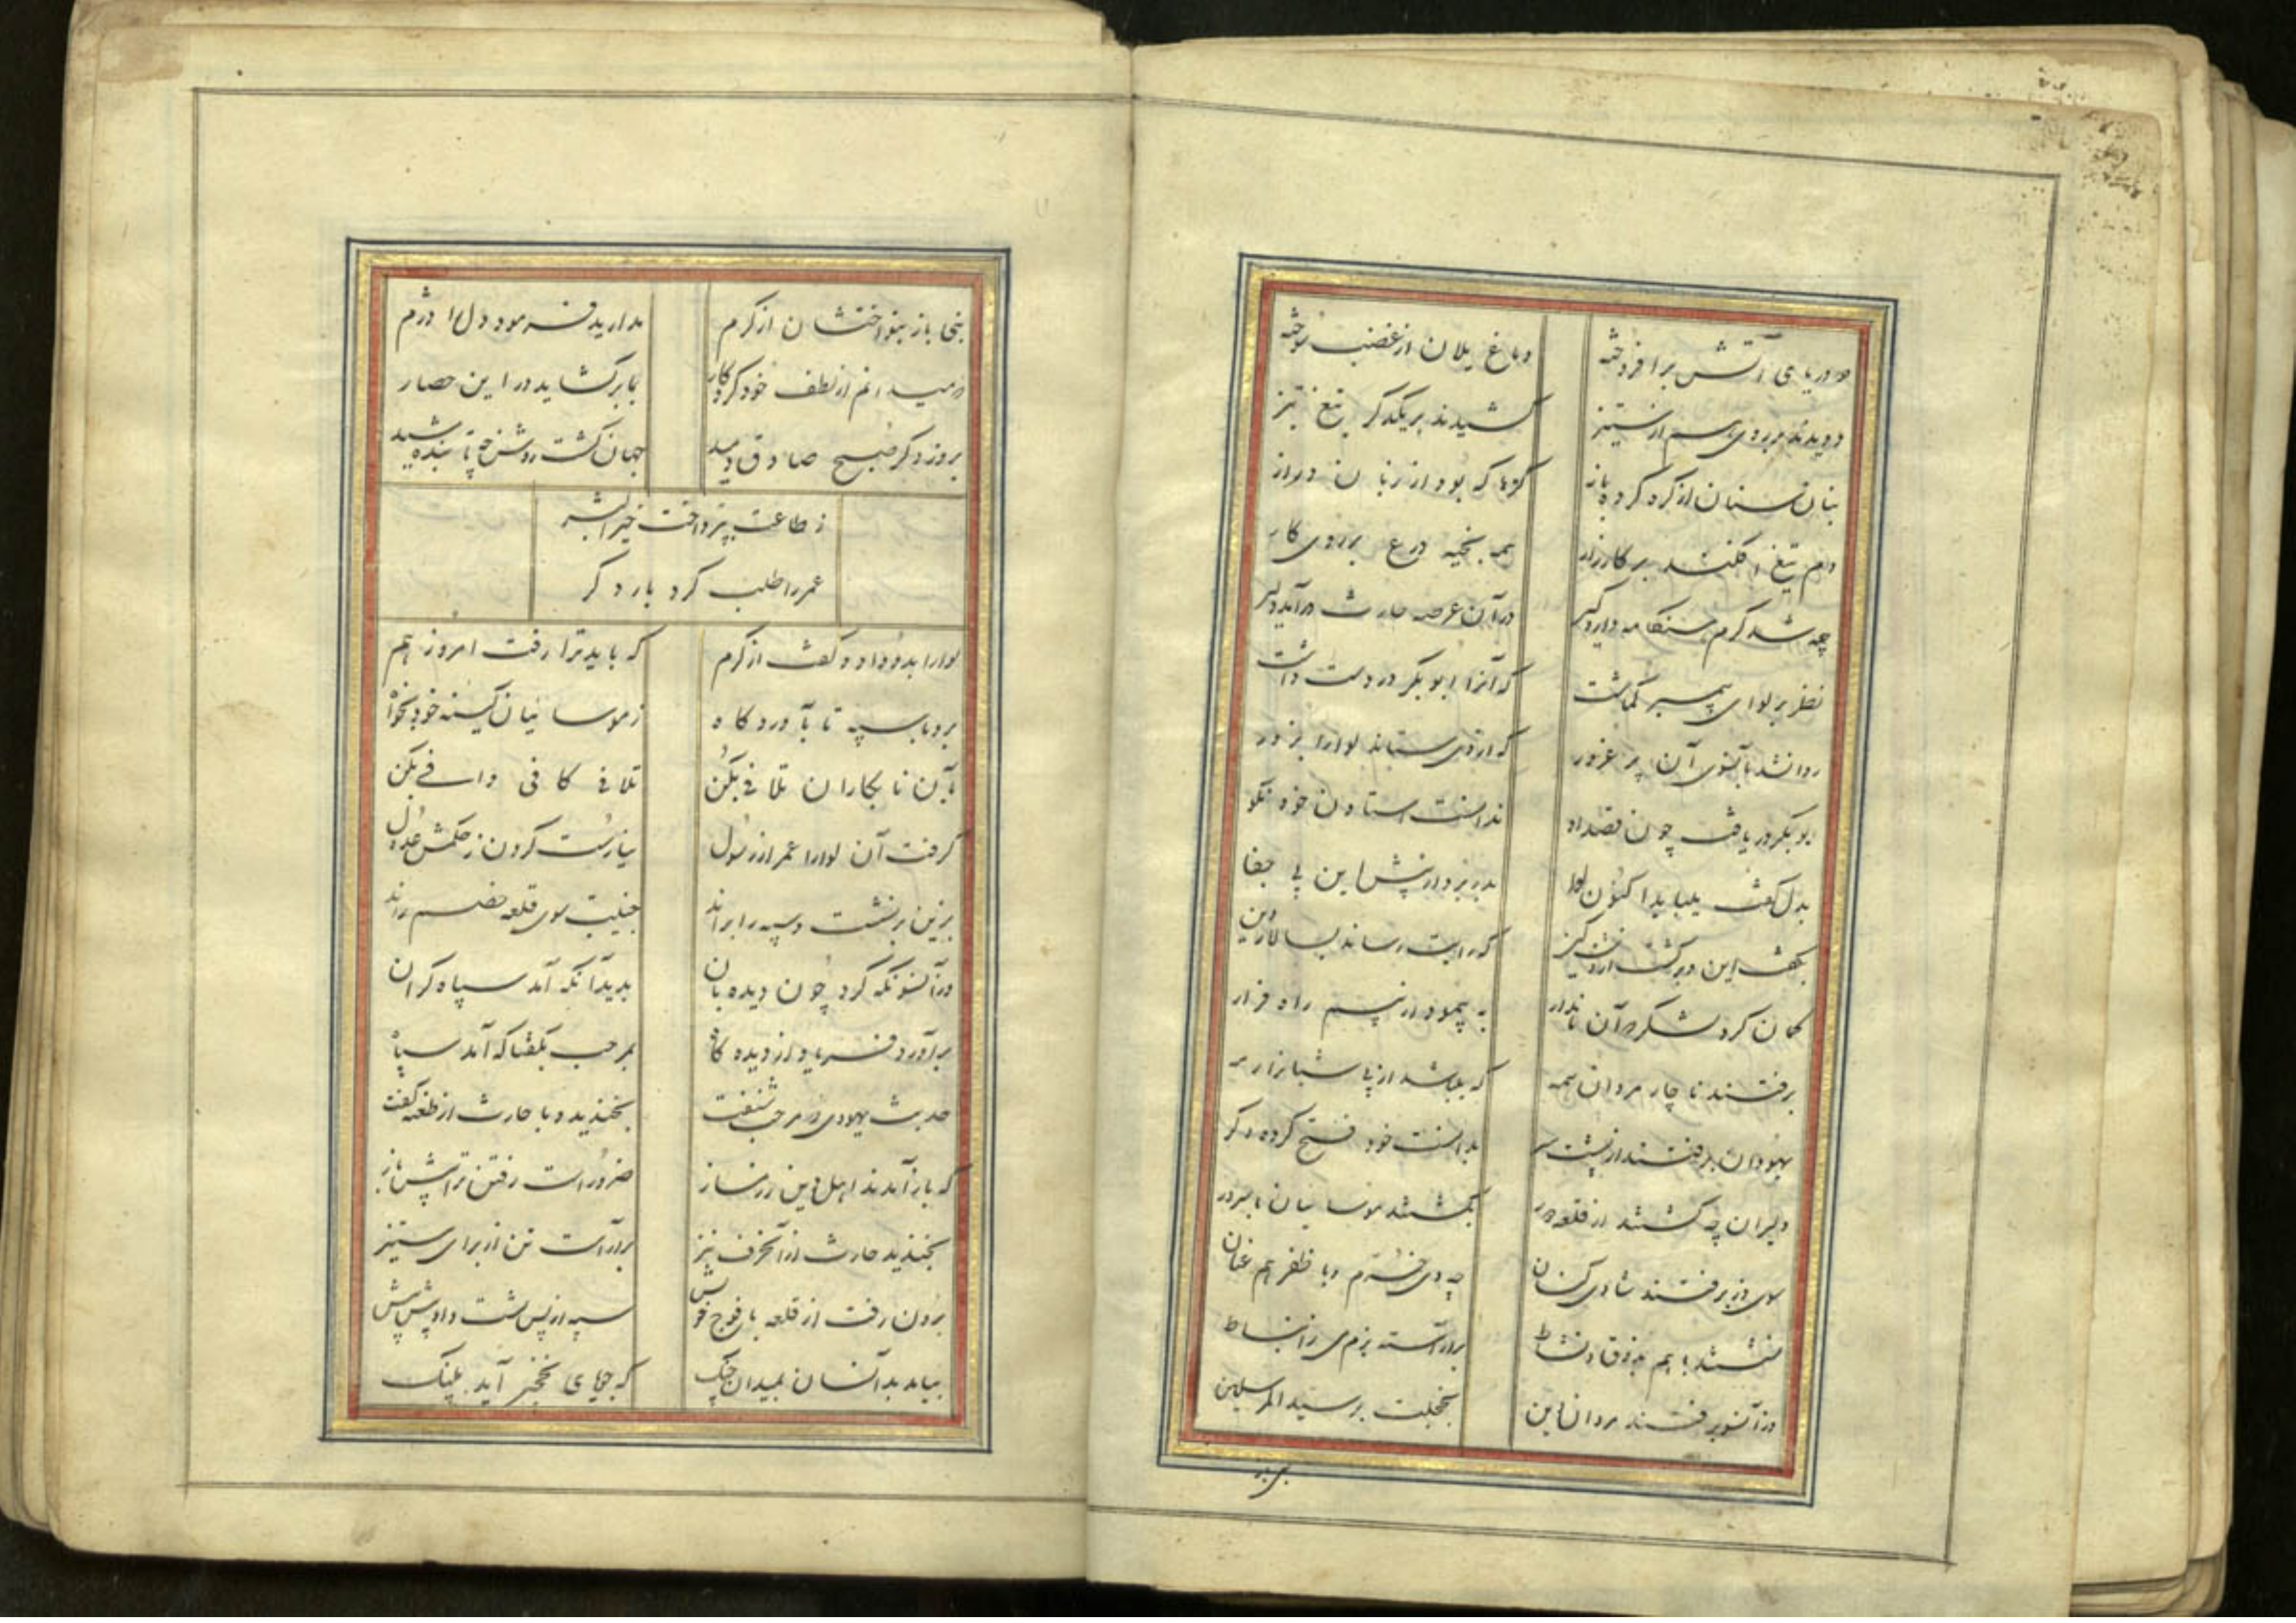 دو دریای آتش برافروخته دماغ یلان از غضب سوخته
دویدند بر روی هم از ستیز کشیدند بر یکدگر تیغ تیز
بنان سنان از گره کرده باز گرها که بود از زبان دراز
دم تیغ افکند بر کارزار همه بخیه درع بر روی کار
چه شد گرم هنگامه دار و گیر در آن عرصه حارث درآمد دلیر
نظر بر لوای پیمبر گماشت که آنرا ابوبکر در دست داشت
روانشد بآنسوی آن پر غرور که از وی ستاند لوا را بزور
ابوبکر دریافت چون قصد او ندانست استادن خود نکو
بدل گفت بیاید اکنون لوا بدر بردن از پیش این پر جفا
بگفت این و برگشت از دشت کین که رایت رساند بسالار دین
گمان کرد لشکر که آن نامدار به پیمود از بیم راه فرار
برفتند ناچار مردان همه که باشد از پی شبان رمه
یهودان برفتند از پشت سر بدانست خود فتح کرده دگر
دلیران چه گشتند از قلعه دور بگشتند موسائیان با سرور
سوی دز برفتند شادی کنان چه دی خرم و با ظفر هم عنان
نشستند با هم بذوق و نشاط برآراسته بزمی از انبساط
وز آنسو برفتند مردان دین بخجلت بر سید المرسلین
نبی باز بنواختشان از کرم مدارید فرمود دل را دژم
که میدانم از لطف خود کردگار بما برگشاید در این حصار
بروز دگر صبح صادق دمید جهان گشت روشن چه تابنده شید
ز طاعت بپرداخت خیر البشر
عمر را طلب کرد بار دگر
لوا را بدو داد و گفت از کرم که باید ترا رفت امروز هم
برو با سپه تا بآوردگاه ز موسائیان کینه خود بخواه
بآن نابکاران تلافی بکن تلافی کافی وافی بکن
گرفت آن لوا را عمر از رسول نیارست کردن ز حکمش عدول
بزین برنشست و سپه را براند جنیبت سوی قلعه خصم راند
در آنسو نگه کرد چون دیده بان بدید آنکه آمد سپاه گران
برآورد فریاد از دیده گاه بمرحب بگفتا که آمد سپاه
حدیث یهودی چو مرحب شنفت بخندید و با حارث از طعنه گفت
که باز آمدند اهل دین رزمساز ضرور است رفتن ترا پیش باز
بخندید حارث از آن حرف نیز برآراست تن از برای ستیز
برون رفت از قلعه با فوج خویش سپه از پس پشت و او پیش پیش
بیامد بدانسان بمیدان جنگ که جویای نخجیر آید پلنگ
نبی باز